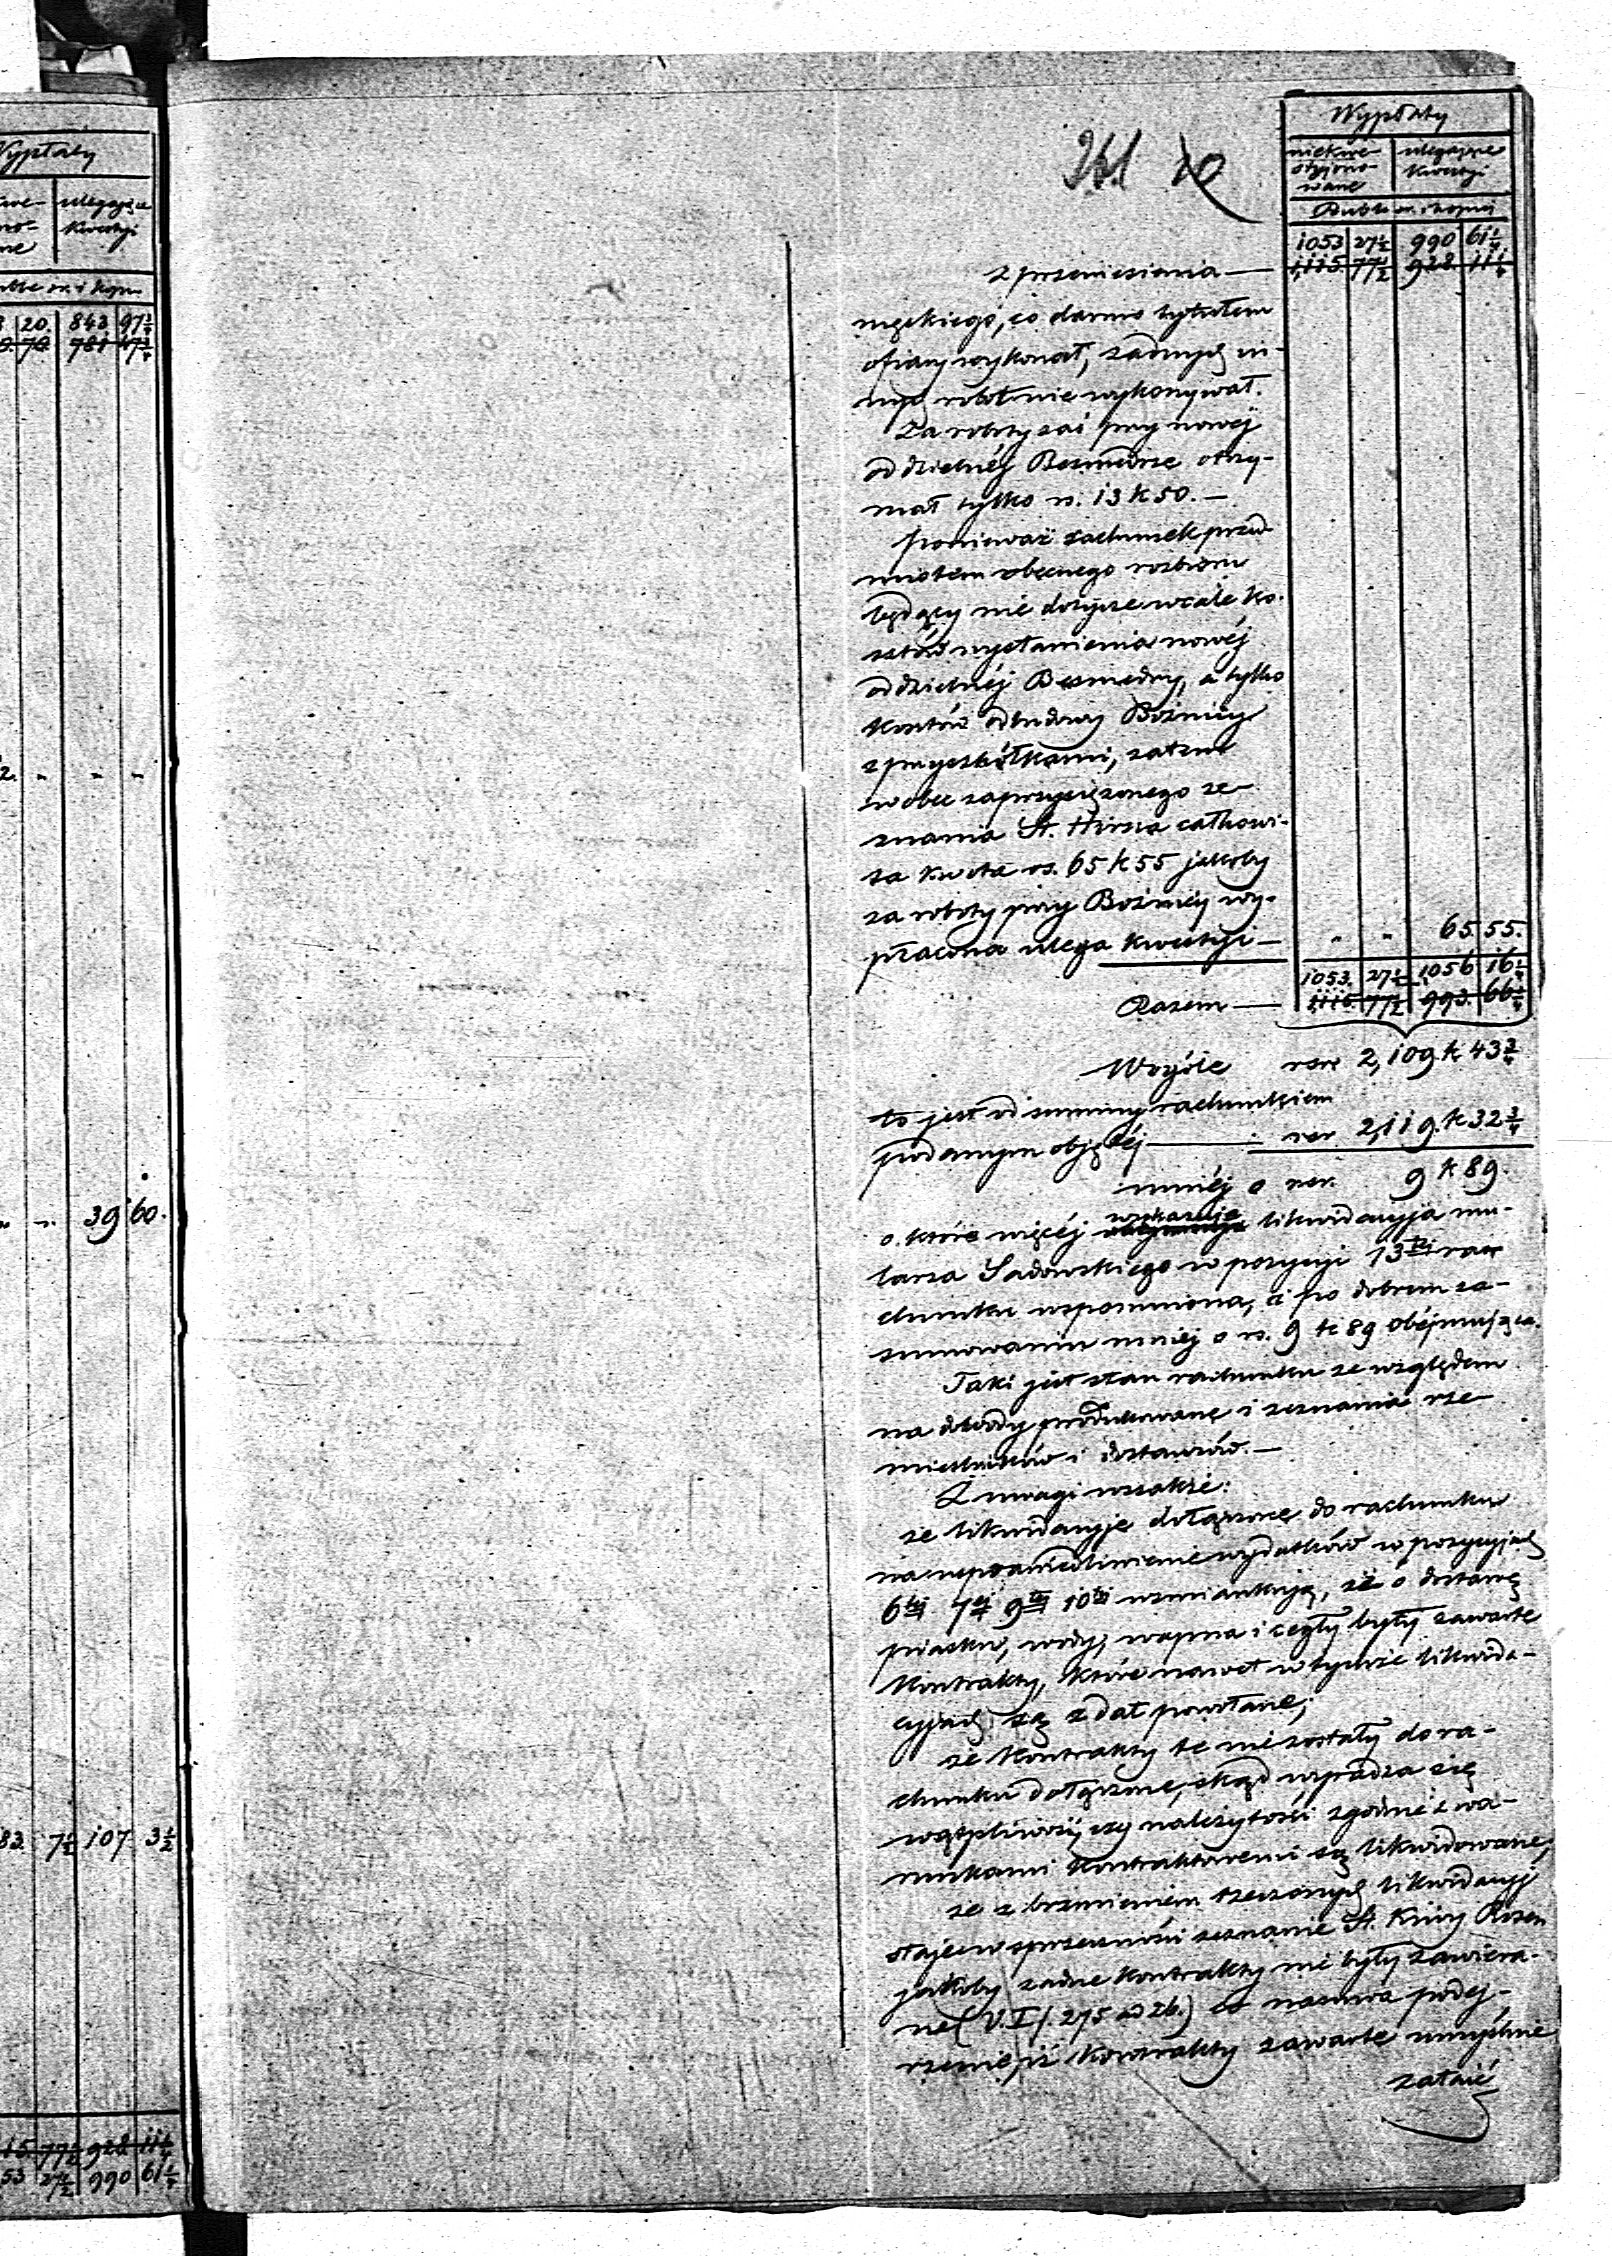 Wypłaty
ulegające
kwestyi
20. 843 97 3/4
70 781 47 3/4
39 60.
83. 7 1/2 107 3 1/2
15 77 1/2 928 11 1/4
53 27 1/2 990 61 1/4
261 20
Wypłaty
niekwe- ulegające
styjono- kwestyi
wane
Ruble sr. i kopiejki
1053 27 1/2 990 61 1/4
z przeniesienia — 1,115. 77 1/2 928 11 1/4
męskiego, co darmo tytułem
ofiary wykonał, żadnych in-
nych robót nie wykonywał.
Za roboty zaś przy nowéj
oddzielnéj Besmedrze otrzy-
mał tylko rs. 13 k 50. —
Ponieważ rachunek przed-
miotem obecnego rozbioru
będący nie dotycze wcale ko-
sztów wystawienia nowéj
oddzielnéj Besmedry, a tylko
kosztów odbudowy Bożnicy
z przyszkółkami, zatem
wobec zaprzysiężonego ze-
znania St. Hirsza całkowi-
ta kwota rs. 65 k 55 jakoby
za roboty przy Bożnicy wy-
płacona ulega kwestyi — " " 65. 55.
1053. 27 1/2 1056 16 1/4
Razem — 1,115. 77 1/2 993. 66 1/4
Wogóle rsr 2,109. k 43 3/4
to jest od summy rachunkiem
podanym objętéj — rsr 2,119. k 32 3/4
mniéj o rsr. 9 k 89.
wykazuje
o które więcéj likwidacyja mu-
larza Sadowskiego w pozycyi 13téj ra-
chunku wspomniona, a po dobrem za-
sumowaniu mniéj o rs. 9 k 89 obejmująca.
Taki jest stan rachunku ze względem
na dowody produkowane i zeznania rze-
mieślników i dostawców. —
Z uwagi wszakże:
że likwidacyje dołączone do rachunku
na usprawiedliwienie wydatków w pozycyjach
6téj 7éj 9téj 10téj wzmiankują, że o dostawę
piasku, wody, wapna i cegły były zawarte
kontrakty, które nawet w tychże likwida-
cyjach są z dat powołane;
że kontrakty te nie zostały do ra-
chunku dołączone, skąd wyradza się
wątpliwość, czy należytości zgodnie z wa-
runkami kontraktowemi są likwidowane,
że z brzmieniem rzeczonych likwidacyj
staje w sprzeczności zeznanie St. Kiwy Rozen
jakoby żadne kontrakty nie były zawiera-
ne (V. I f. 275 ad 26.) co nasuwa podej-
rzenie, iż kontrakty zawarte umyślnie
zataić